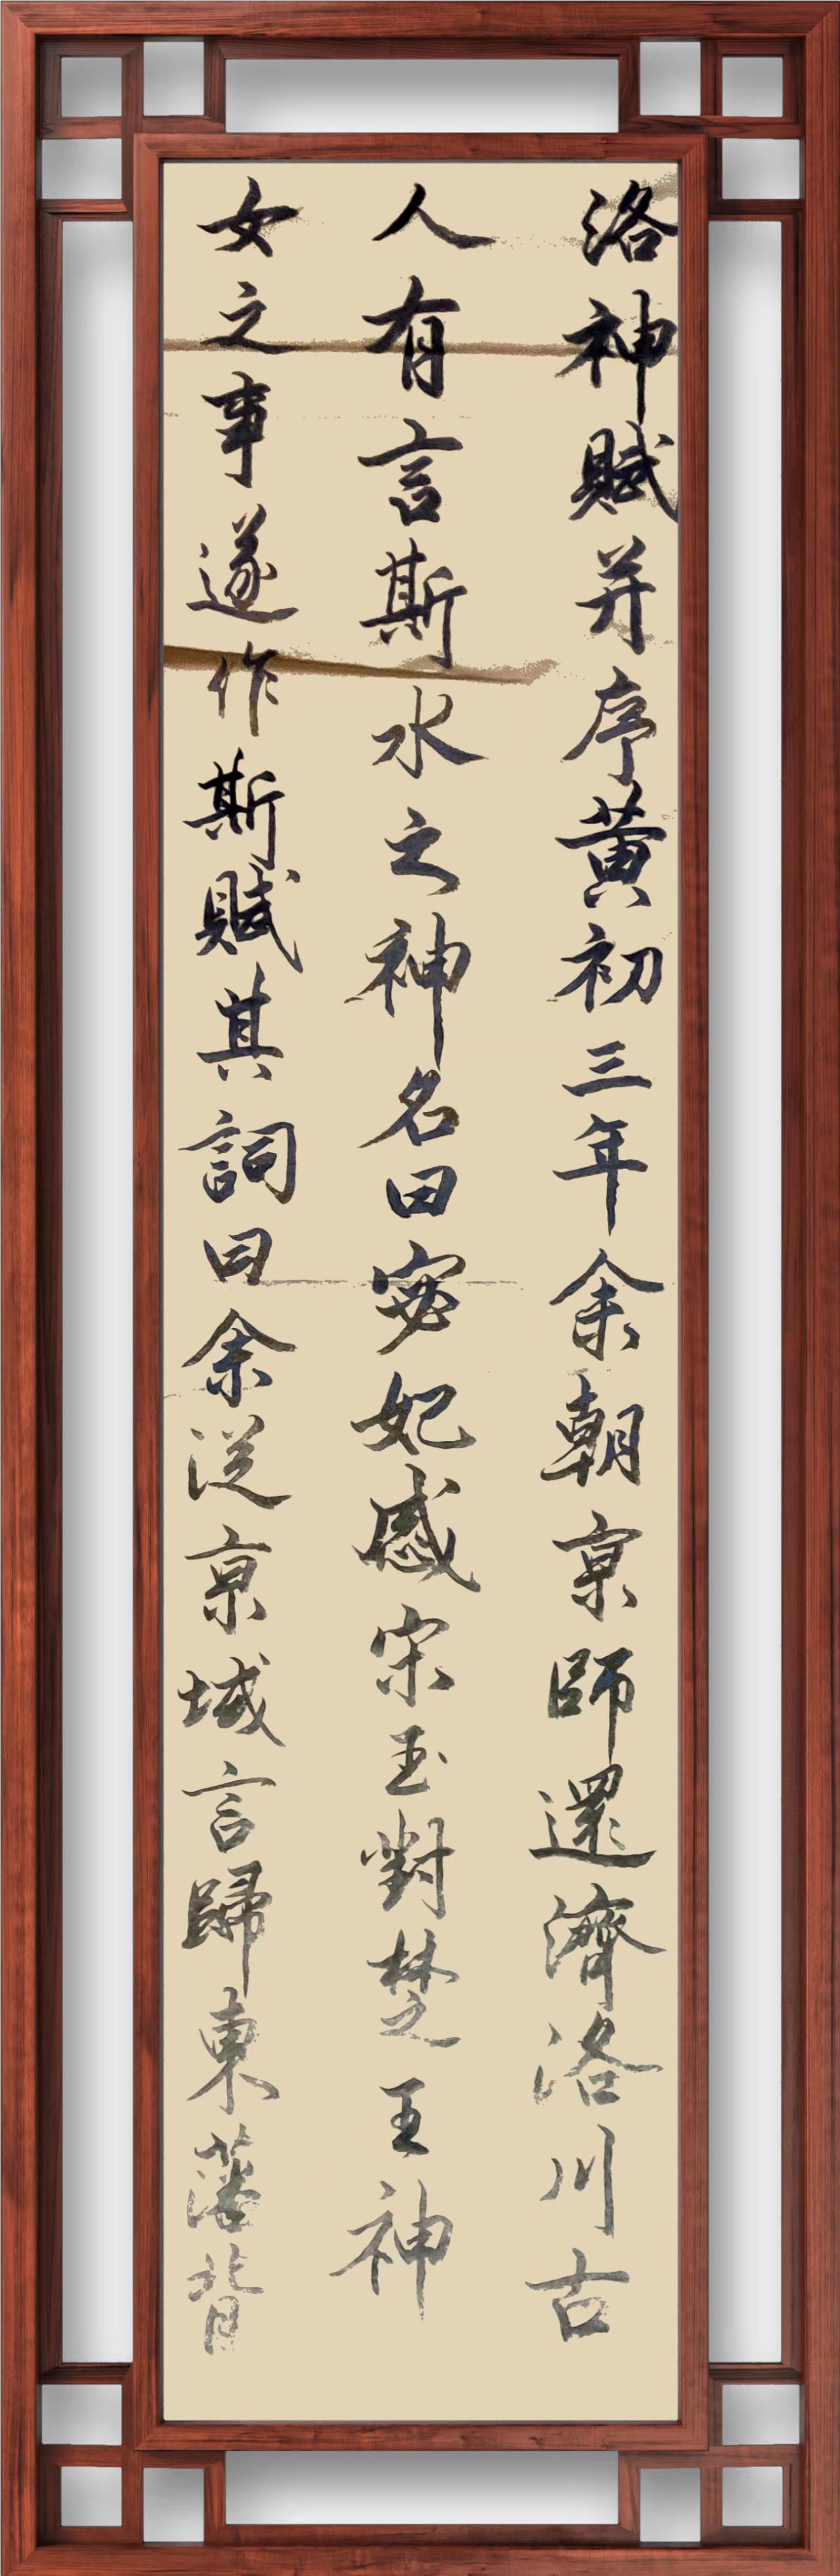 洛神賦并序黄初三年余朝京師還濟洛川古
人有言斯水之神名曰宓妃感宋玉對楚王神
女之事遂作斯賦其詞曰余從京域言歸東藩背